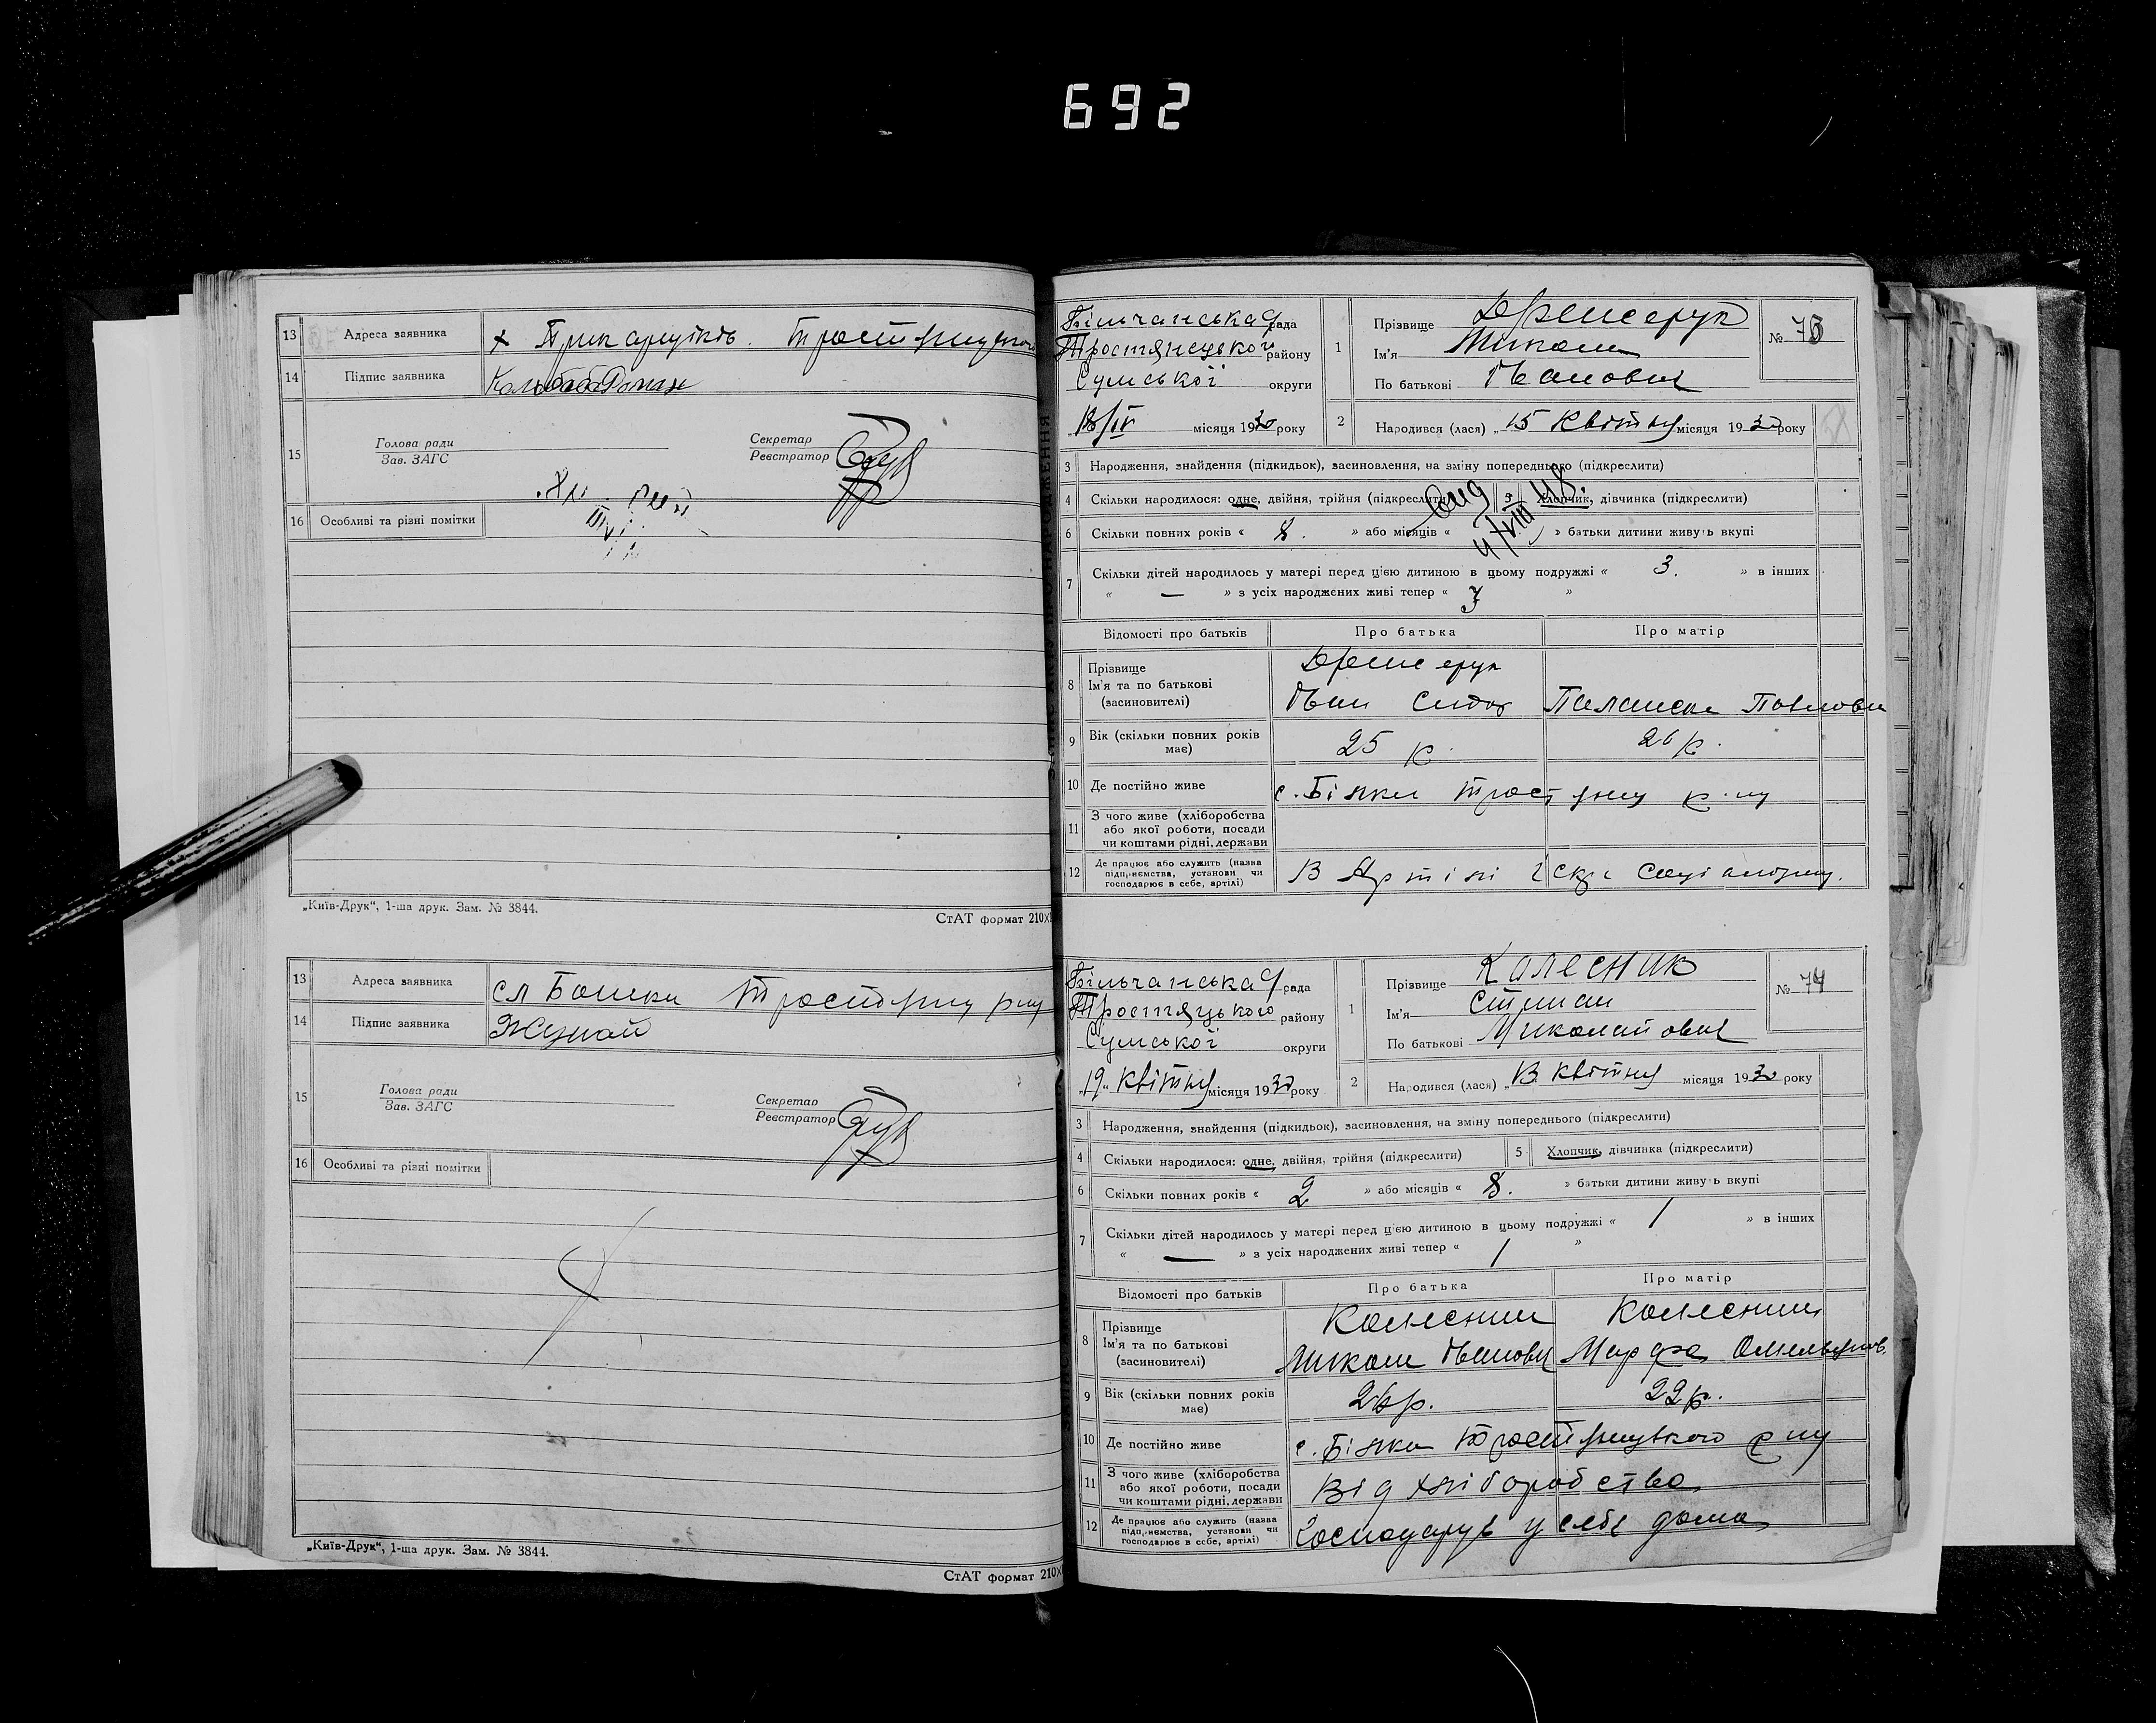 692
13 Адреса заявника х
14 Підпис заявника
15 Голова ради
Зав. ЗАГС
Секретар
Реєстратор
16 Особливі та різні помітки
„Київ-Друк“, 1-ша друк. Зам. № 3844.
СтАТ формат 210×
13 Адреса заявника сл
14 Підпис заявника
15 Голова ради
Зав. ЗАГС
Секретар
Реєстратор
16 Особливі та різні помітки
„Київ-Друк“, 1-ша друк. Зам. № 3844.
СтАТ формат 210×
Більчанська рада
Тростянецького району
Сумської округи
18/IV місяця 1930 року
1 Прізвище
Ім'я Микола
По батькові Іванович
№ 73
2 Народився (лася) „15 Квітня місяця 1930 року
3 Народження, знайдення (підкидьок), засиновлення, на зміну попереднього (підкреслити)
4 Скільки народилося: одне, двійня, трійня (підкреслити) 5 Хлопчик, дівчинка (підкреслити)
6 Скільки повних років « 8. » або місяців « » батьки дитини живуть вкупі
7 Скільки дітей народилось у матері перед цією дитиною в цьому подружжі « 3. » в інших
« — » з усіх народжених живі тепер « 3 »
Відомості про батьків Про батька Про матір
8 Прізвище
Ім'я та по батькові Іван Сидор
(засновителі)
9 Вік (скільки повних років має) 25 р. 26 р.
10 Де постійно живе с. Білки
11 З чого живе (хліборобства
або якої роботи, посади
чи коштами рідні, держави
12 Де працює або служить (назва
підприємства, установи чи
господарює в себе, артілі) В Артілі Іскра Соціалізму.
Більчанська рада
Тростяцького району
Сумської округи
„19“ Квітня місяця 1930 року
1 Прізвище Колесник
Ім'я Степан
По батькові Миколайович
№ 74
2 Народився (лася) Квітня місяця 1930 року
3 Народження, знайдення (підкидьок), засиновлення, на зміну попереднього (підкреслити)
4 Скільки народилося: одне, двійня, трійня (підкреслити) 5 Хлопчик, дівчинка (підкреслити)
6 Скільки повних років « 2 » або місяців « 8. » батьки дитини живуть вкупі
7 Скільки дітей народилось у матері перед цією дитиною в цьому подружжі « 1 » в інших
« — » з усіх народжених живі тепер « 1 »
Відомості про батьків Про батька Про матір
8 Прізвище Колесник Колесник
Ім'я та по батькові Микола Іванови Марфа
(засиновителі)
9 Вік (скільки повних років має) 26 р. 22 р.
10 Де постійно живе с. Білки Тростянецького р-ну
11 З чого живе (хліборобства
або якої роботи, посади
чи коштами рідні, держави Від хліборобства
12 Де працює або служить (назва
підприємства, установи чи
господарює в себе, артілі) Господарує у себе дома